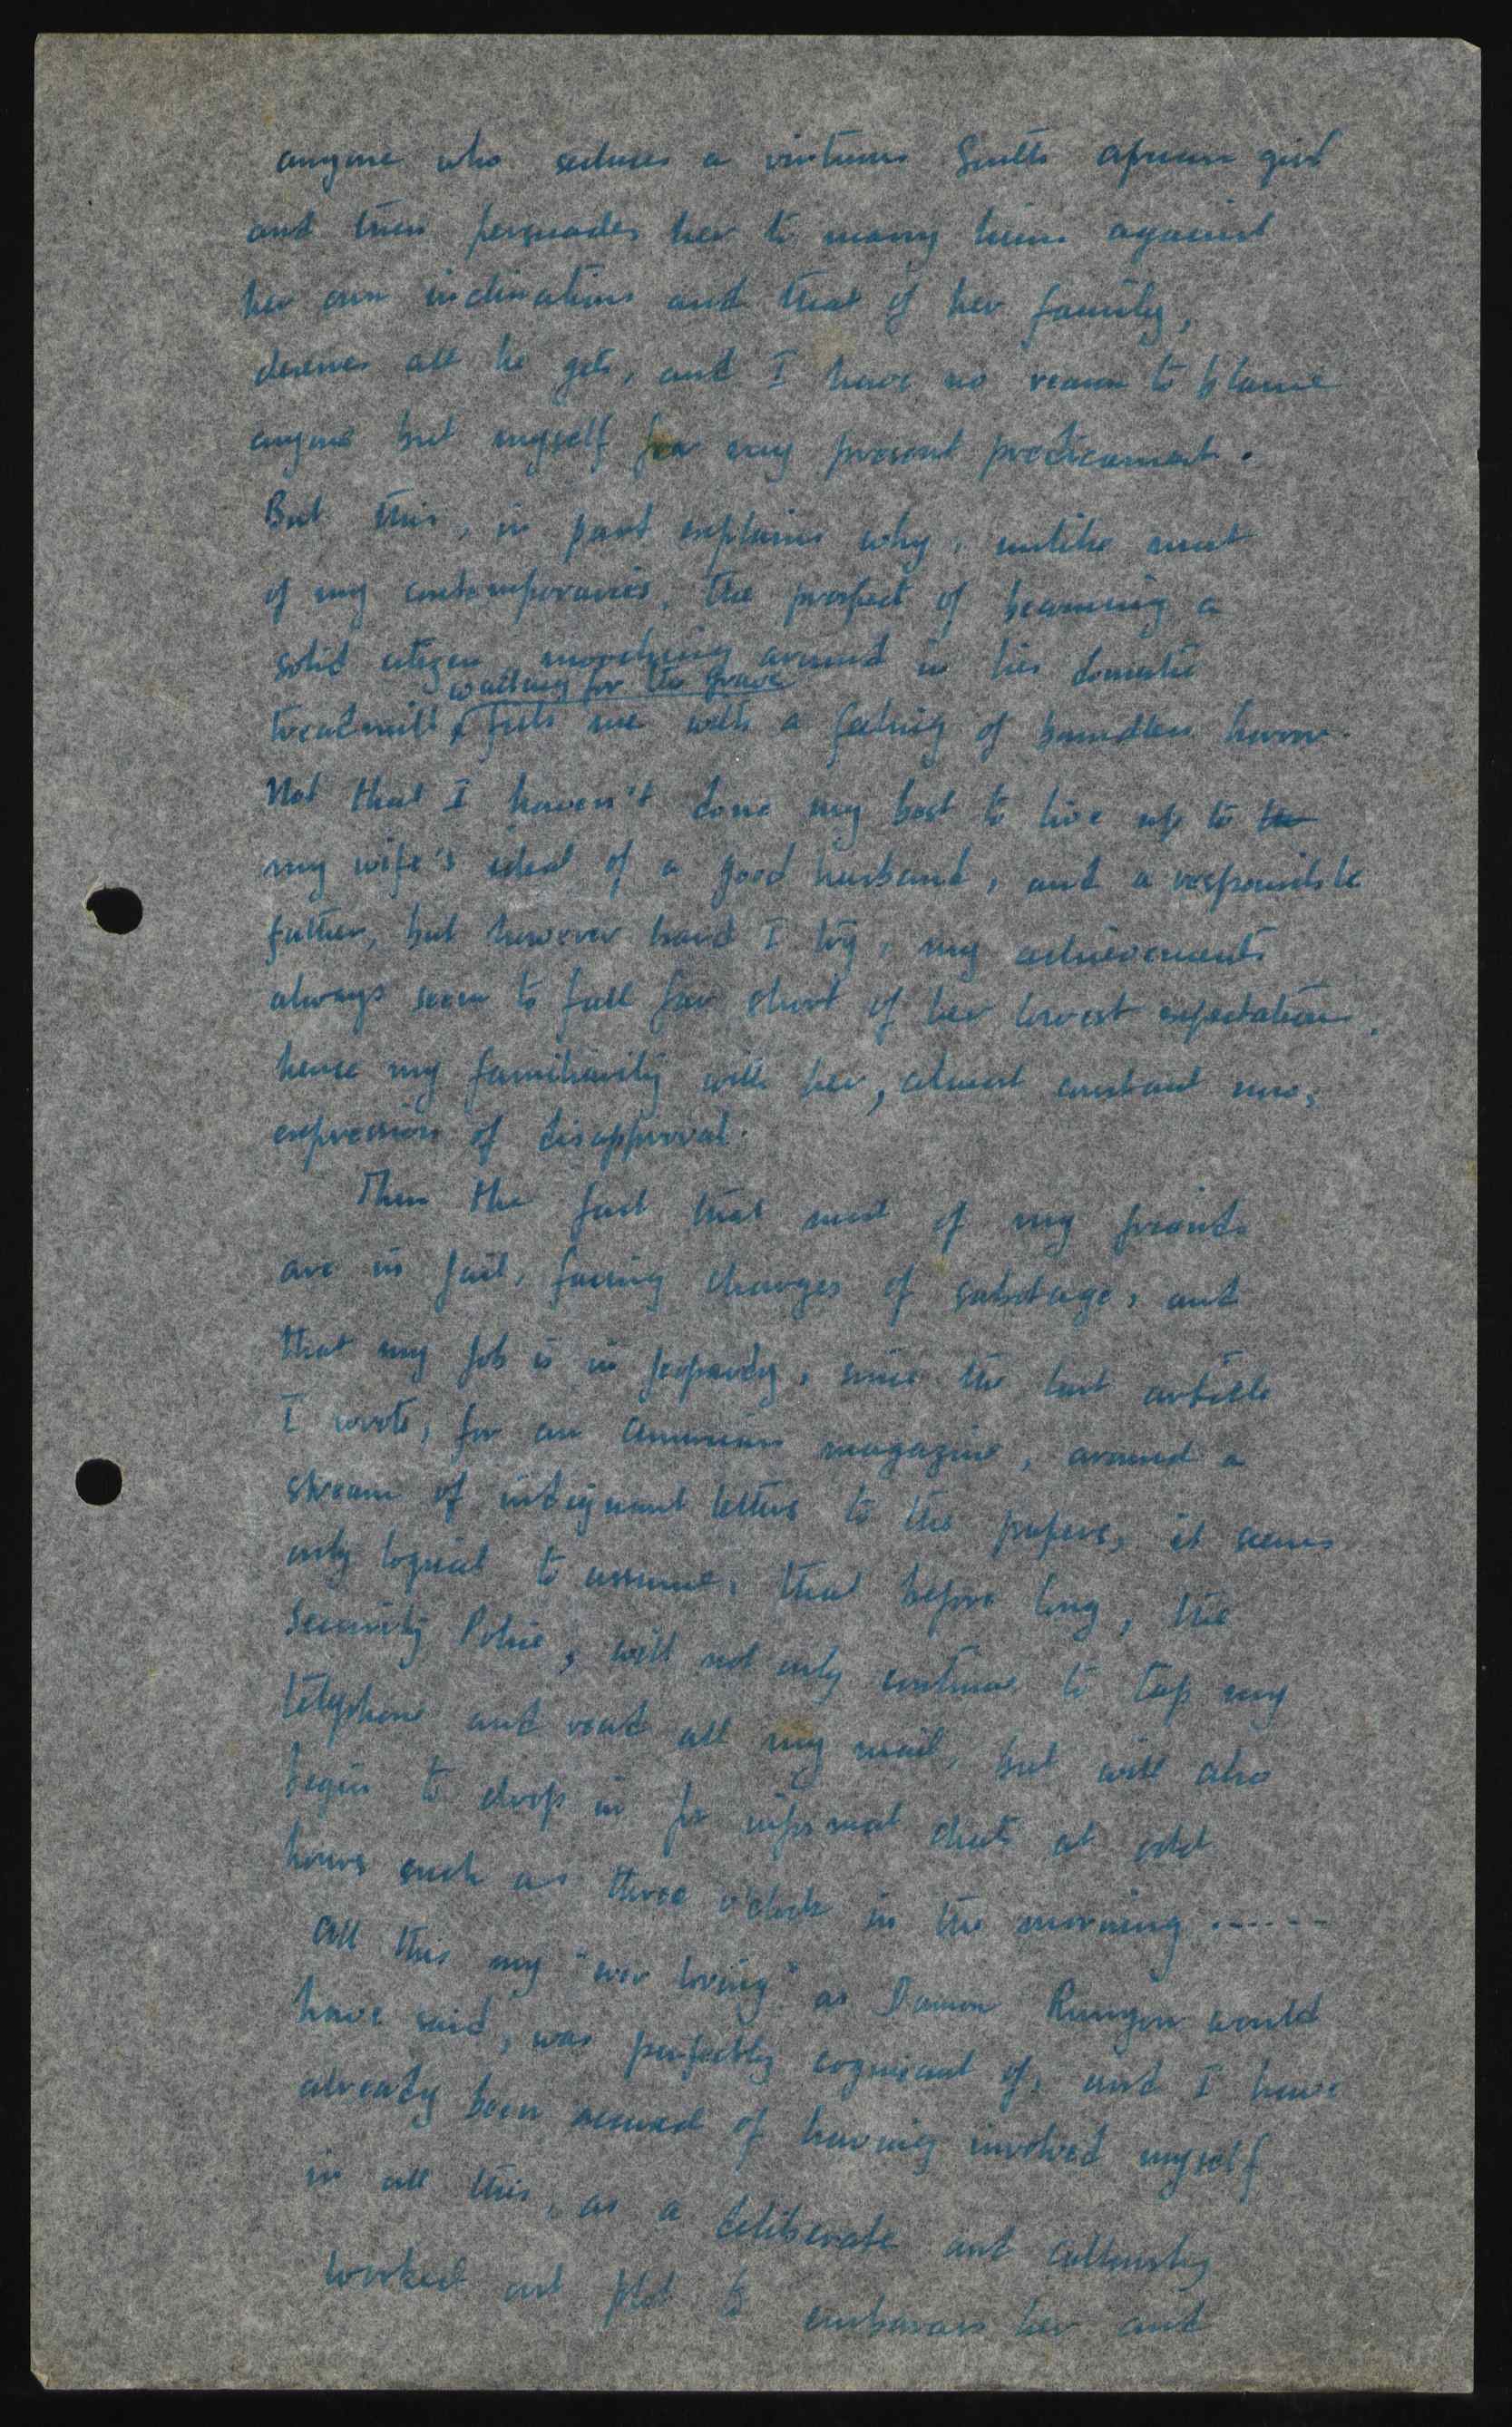 anyone who seduces a virtuous South African girl
and then persuades her to marry him against
her own inclinations and that of her family,
deserves all he gets, and I have no reason to blame
anyone but myself for my present predicament.
But this, in part explains why, unlike most
of my contemporaries, the prospect of becoming a
solid citizen, mooching around in his domestic
waiting for the grave
treadmill, fills me with a feeling of boundless horror.
Not that I haven't done my best to live up to the
my wife's ideal of a good husband, and a responsible
father, but however hard I try, my achievements
always seem to fall far short of her lowest expectations,
hence my familiarity with her, almost constant now,
expression of disapproval.
Then the fact that most of my friends
are in jail, facing charges of sabotage, and
that my job is in jeopardy, since the last article
I wrote, for an American magazine, aroused a
stream of indignant letters to the papers, it seems
only logical to assume, that before long, the
Security Police, will not only continue to tap my
telephone and read all my mail, but will also
begin to drop in for informal chats at odd
hours such as three o'clock in the morning ......
All this my "ever loving" as Damon Runyon would
have said, was perfectly cognisant of, and I have
already been accused of having involved myself
in all this, as a deliberate and callously
worked out plot to embarass her and